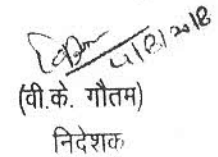 4/8/2018
(वी.के. गौतम)
निदेशक